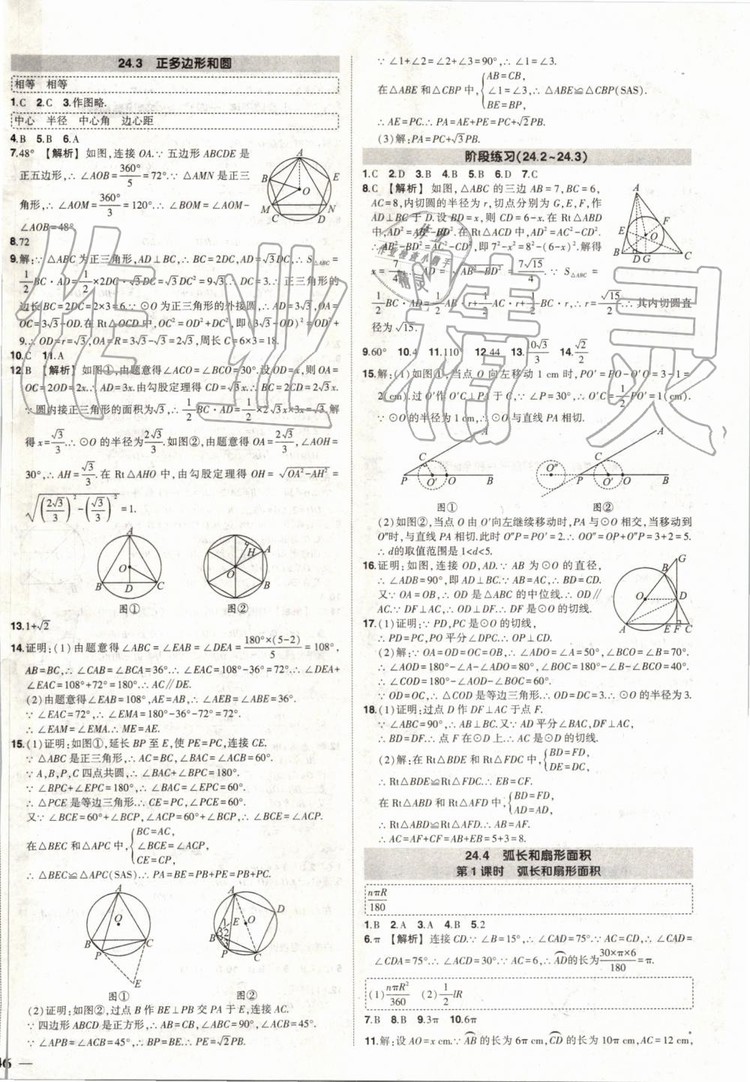 24.3 正多边形和圆
相等 相等
1.C 2.C 3.作图略.
中心 半径 中心角 边心距
4.B 5.B 6.A
7.48° 【解析】如图,连接OA.∵五边形ABCDE是
正五边形,∴∠AOB=360°/5=72°.∵△AMN是正三
角形,∴∠AOM=360°/3=120°.∴∠BOM=∠AOM-
∠AOB=48°.
8.72
9.解:∵△ABC为正三角形,AD⊥BC,∴AD=√3DC.∵S△ABC=
1/2BC·AD=1/2×2DC·√3DC=√3DC²=9√3.∴DC=3.∴正三角形的
边长BC=2DC=2×3=6.∵⊙O为正三角形的外接圆,∴AD=3√3,OA=
3√3-OD.在Rt△OCD中,OC²=OD²+DC²,即(3√3-OD)²=OD²+
9.∴OD=r=√3,OA=R=3√3-√3=2√3,周长C=6×3=18.
10.C 11.A
12.B 【解析】如图①,由题意得∠ACO=∠BCO=30°.设OD=x,则OA=
OC=2OD=2x.∴AD=3x.由勾股定理得CD=√3x.∴BC=2CD=2√3x.
∵圆内接正三角形的面积为√3,∴1/2BC·AD=1/2×2√3x×3x=√3.解
得x=√3/3.∴⊙O的半径为2√3/3.如图②,由题意得OA=2√3/3,∠AOH=
30°,∴AH=√3/3.在Rt△AHO中,由勾股定理得OH=√(OA²-AH²)=
√((2√3/3)²-(√3/3)²)=1.
A
O
B D C
图①
H A
O
B
图②
13.1+√2
14.证明:(1)由题意得∠ABC=∠EAB=∠DEA=180°×(5-2)/5=108°,
AB=BC,∴∠CAB=∠BCA=36°.∴∠EAC=108°-36°=72°.∴∠DEA+
∠EAC=108°+72°=180°.∴AC∥DE.
(2)由题意得∠EAB=108°,AE=AB,∴∠AEB=∠ABE=36°.
∵∠EAC=72°,∴∠EMA=180°-36°-72°=72°.
∴∠EAM=∠EMA.∴ME=AE.
15.(1)证明:如图①,延长BP至E,使PE=PC,连接CE.
∵△ABC是正三角形,∴AC=BC,∠BAC=∠ACB=60°.
∵A,B,P,C四点共圆,∴∠BAC+∠BPC=180°.
∵∠BPC+∠EPC=180°,∴∠BAC=∠EPC=60°.
∴△PCE是等边三角形.∴CE=PC,∠PCE=60°.
又∵∠BCE=60°+∠BCP,∠ACP=60°+∠BCP,∴∠BCE=∠ACP.
在△BEC和△APC中,{BC=AC, ∠BCE=∠ACP, CE=CP,
∴△BEC≌△APC(SAS).∴PA=BE=PB+PE=PB+PC.
A
O
B C
P E
图①
A D
E O
B C
P
图②
(2)证明:如图②,过点B作BE⊥PB交PA于E,连接AC.
∵四边形ABCD是正方形,∴∠ACB=45°.
∴∠APB=∠ACB=45°,∴BP=BE.∴PE=√2PB.
∵∠1+∠2=∠2+∠3=90°,∴∠1=∠3.
在△ABE和△CBP中,{AB=CB, ∠1=∠3, BE=BP, ∴△ABE≌△CBP(SAS).
∴AE=PC.∴PA=AE+PE=PC+√2PB.
(3)解:PA=PC+√3PB.
阶段练习(24.2~24.3)
1.C 2.D 3.B 4.B 5.C 6.C 7.C
8.C 【解析】如图,△ABC的三边AB=7,BC=6,
AC=8,内切圆的半径为r,切点分别为G,E,F,作
AD⊥BC于D.设BD=x,则CD=6-x.在Rt△ABD
中,AD²=AB²-BD².在Rt△ACD中,AD²=AC²-
CD²,∴AB²-BD²=AC²-CD²,即7²-x²=8²-(6-x)².解得
A
E F
B D G C
9.60° 10.4 11.110 12.44
15.解:(1)如图①,当点O向左移动1 cm时,PO'=PO-O'O=3-1=
2(cm).过O'作O'C⊥PA于C.∵∠P=30°,∴O'C=1/2PO'=1(cm).
∵⊙O的半径为1 cm,∴⊙O与直线PA相切.
C
P O' O
图①
O" P O' O
图②
(2)如图②,当点O由O'向左继续移动时,PA与⊙O相交,当移动到
O"时,与直线PA相切.此时O"P=PO'=2.∴OO"=OP+O"P=3+2=5.
∴d的取值范围是1<d<5.
16.证明:如图,连接OD,AD.∵AB为⊙O的直径,
∴∠ADB=90°,即AD⊥BC.∵AB=AC,∴BD=CD.
又∵OA=OB,∴OD是△ABC的中位线.∴OD∥
AC.∵DF⊥AC,∴OD⊥DF.∴DF是⊙O的切线.
G
B
O D
A E F C
17.(1)证明:∵PD,PC是⊙O的切线,
∴PD=PC,PO平分∠DPC.∴OP⊥CD.
(2)解:∵OA=OD=OC=OB,∴∠ADO=∠A=50°,∠BCO=∠B=70°.
∴∠AOD=180°-∠A-∠ADO=80°,∠BOC=180°-∠B-∠BCO=40°.
∴∠COD=180°-∠AOD-∠BOC=60°.
∵OD=OC,∴△COD是等边三角形.∴OD=DC=3.∴⊙O的半径为3.
18.(1)证明:过点D作DF⊥AC于点F.
∵∠ABC=90°,∴AB⊥BC.又∵AD平分∠BAC,DF⊥AC,
∴BD=DF.∴点F在⊙D上.∴AC是⊙D的切线.
(2)解:在Rt△BDE和Rt△FDC中,{BD=FD, DE=DC,
∴Rt△BDE≌Rt△FDC.∴EB=CF.
在Rt△ABD和Rt△AFD中,{BD=FD, AD=AD,
∴Rt△ABD≌Rt△AFD.∴AB=AF.
∴AC=AF+CF=AB+EB=5+3=8.
24.4 弧长和扇形面积
第1课时 弧长和扇形面积
nπR/180
1.B 2.A 3.A 4.B 5.2
6.π 【解析】连接CD.∵∠B=15°,∴∠CDA=75°.∵AC=CD,∴∠CAD=
∠CDA=75°.∴∠ACD=30°.∵AC=6,∴AD的长为30×π×6/180=π.
(1)nπR²/360 (2)1/2lR
7.B 8.B 9.3π 10.6π
11.解:设AO=x cm.∵AB的长为6π cm,CD的长为10π cm,AC=12 cm,
46